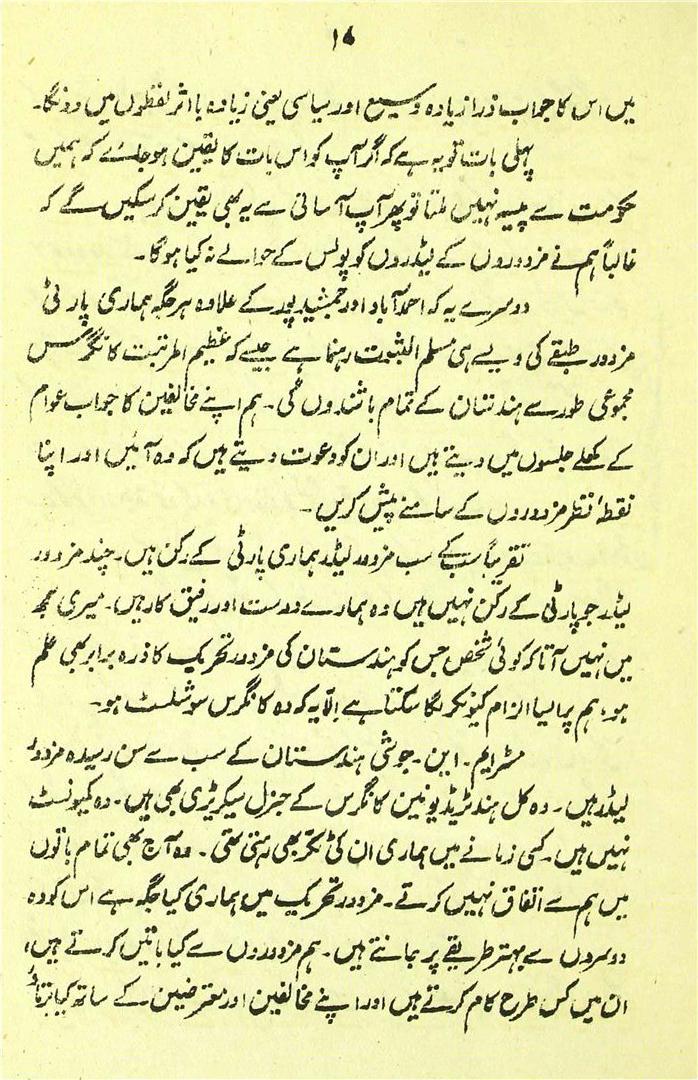 ۱۶
میں اس کا جواب ذرا زیادہ وسیع اور سیاسی یعنی زیادہ با اثر لفظوں میں دونگا۔
پہلی بات تو یہ ہے کہ اگر آپ کو اس بات کا یقین ہو جائے کہ ہمیں
حکومت سے پیسہ نہیں ملتا تو پھر آپ آسانی سے یہ بھی یقین کر سکیں گے کہ
غالباً ہم نے مزدوروں کے لیڈروں کو پولس کے حوالے نہ کیا ہوگا۔
دوسرے یہ کہ احمد آباد اور جمشید پور کے علاوہ ہر جگہ ہماری پارٹی
مزدور طبقے کی ویسے ہی مسلم الثبوت رہنما ہے جیسے کہ عظیم المرتبت کانگرس
مجموعی طور سے ہندستان کے تمام باشندوں کی۔ ہم اپنے مخالفین کا جواب عوام
کے کھلے جلسوں میں دیتے ہیں اور ان کو دعوت دیتے ہیں کہ وہ آئیں اور اپنا
نقطۂ نظر مزدوروں کے سامنے پیش کریں۔
تقریباً سب کے سب مزدور لیڈر ہماری پارٹی کے رکن ہیں۔ چند مزدور
لیڈر جو پارٹی کے رکن نہیں ہیں وہ ہمارے دوست اور رفیق کار ہیں۔ میری سمجھ
میں نہیں آتا کہ کوئی شخص جس کو ہندستان کی مزدور تحریک کا ذرہ برابر بھی علم
ہو، ہم پر ایسا الزام کیونکر لگا سکتا ہے اِلّا یہ کہ وہ کانگرس سوشلسٹ ہو۔
مسٹر ایم۔ این۔ جوشی ہندستان کے سب سے سن رسیدہ مزدور
لیڈر ہیں۔ وہ کل ہند ٹریڈ یونین کانگرس کے جنرل سیکریٹری بھی ہیں۔ وہ کمیونسٹ
نہیں ہیں۔ کسی زمانے میں ہماری ان کی ٹکر بھی رہتی تھی۔ وہ آج بھی تمام باتوں
میں ہم سے اتفاق نہیں کرتے۔ مزدور تحریک میں ہماری کیا جگہ ہے اس کو وہ
دوسروں سے بہتر طریقے پر جانتے ہیں۔ ہم مزدوروں سے کیا باتیں کرتے ہیں،
ان میں کس طرح کام کرتے ہیں اور اپنے مخالفین اور معترضین کے ساتھ کیا برتاؤ